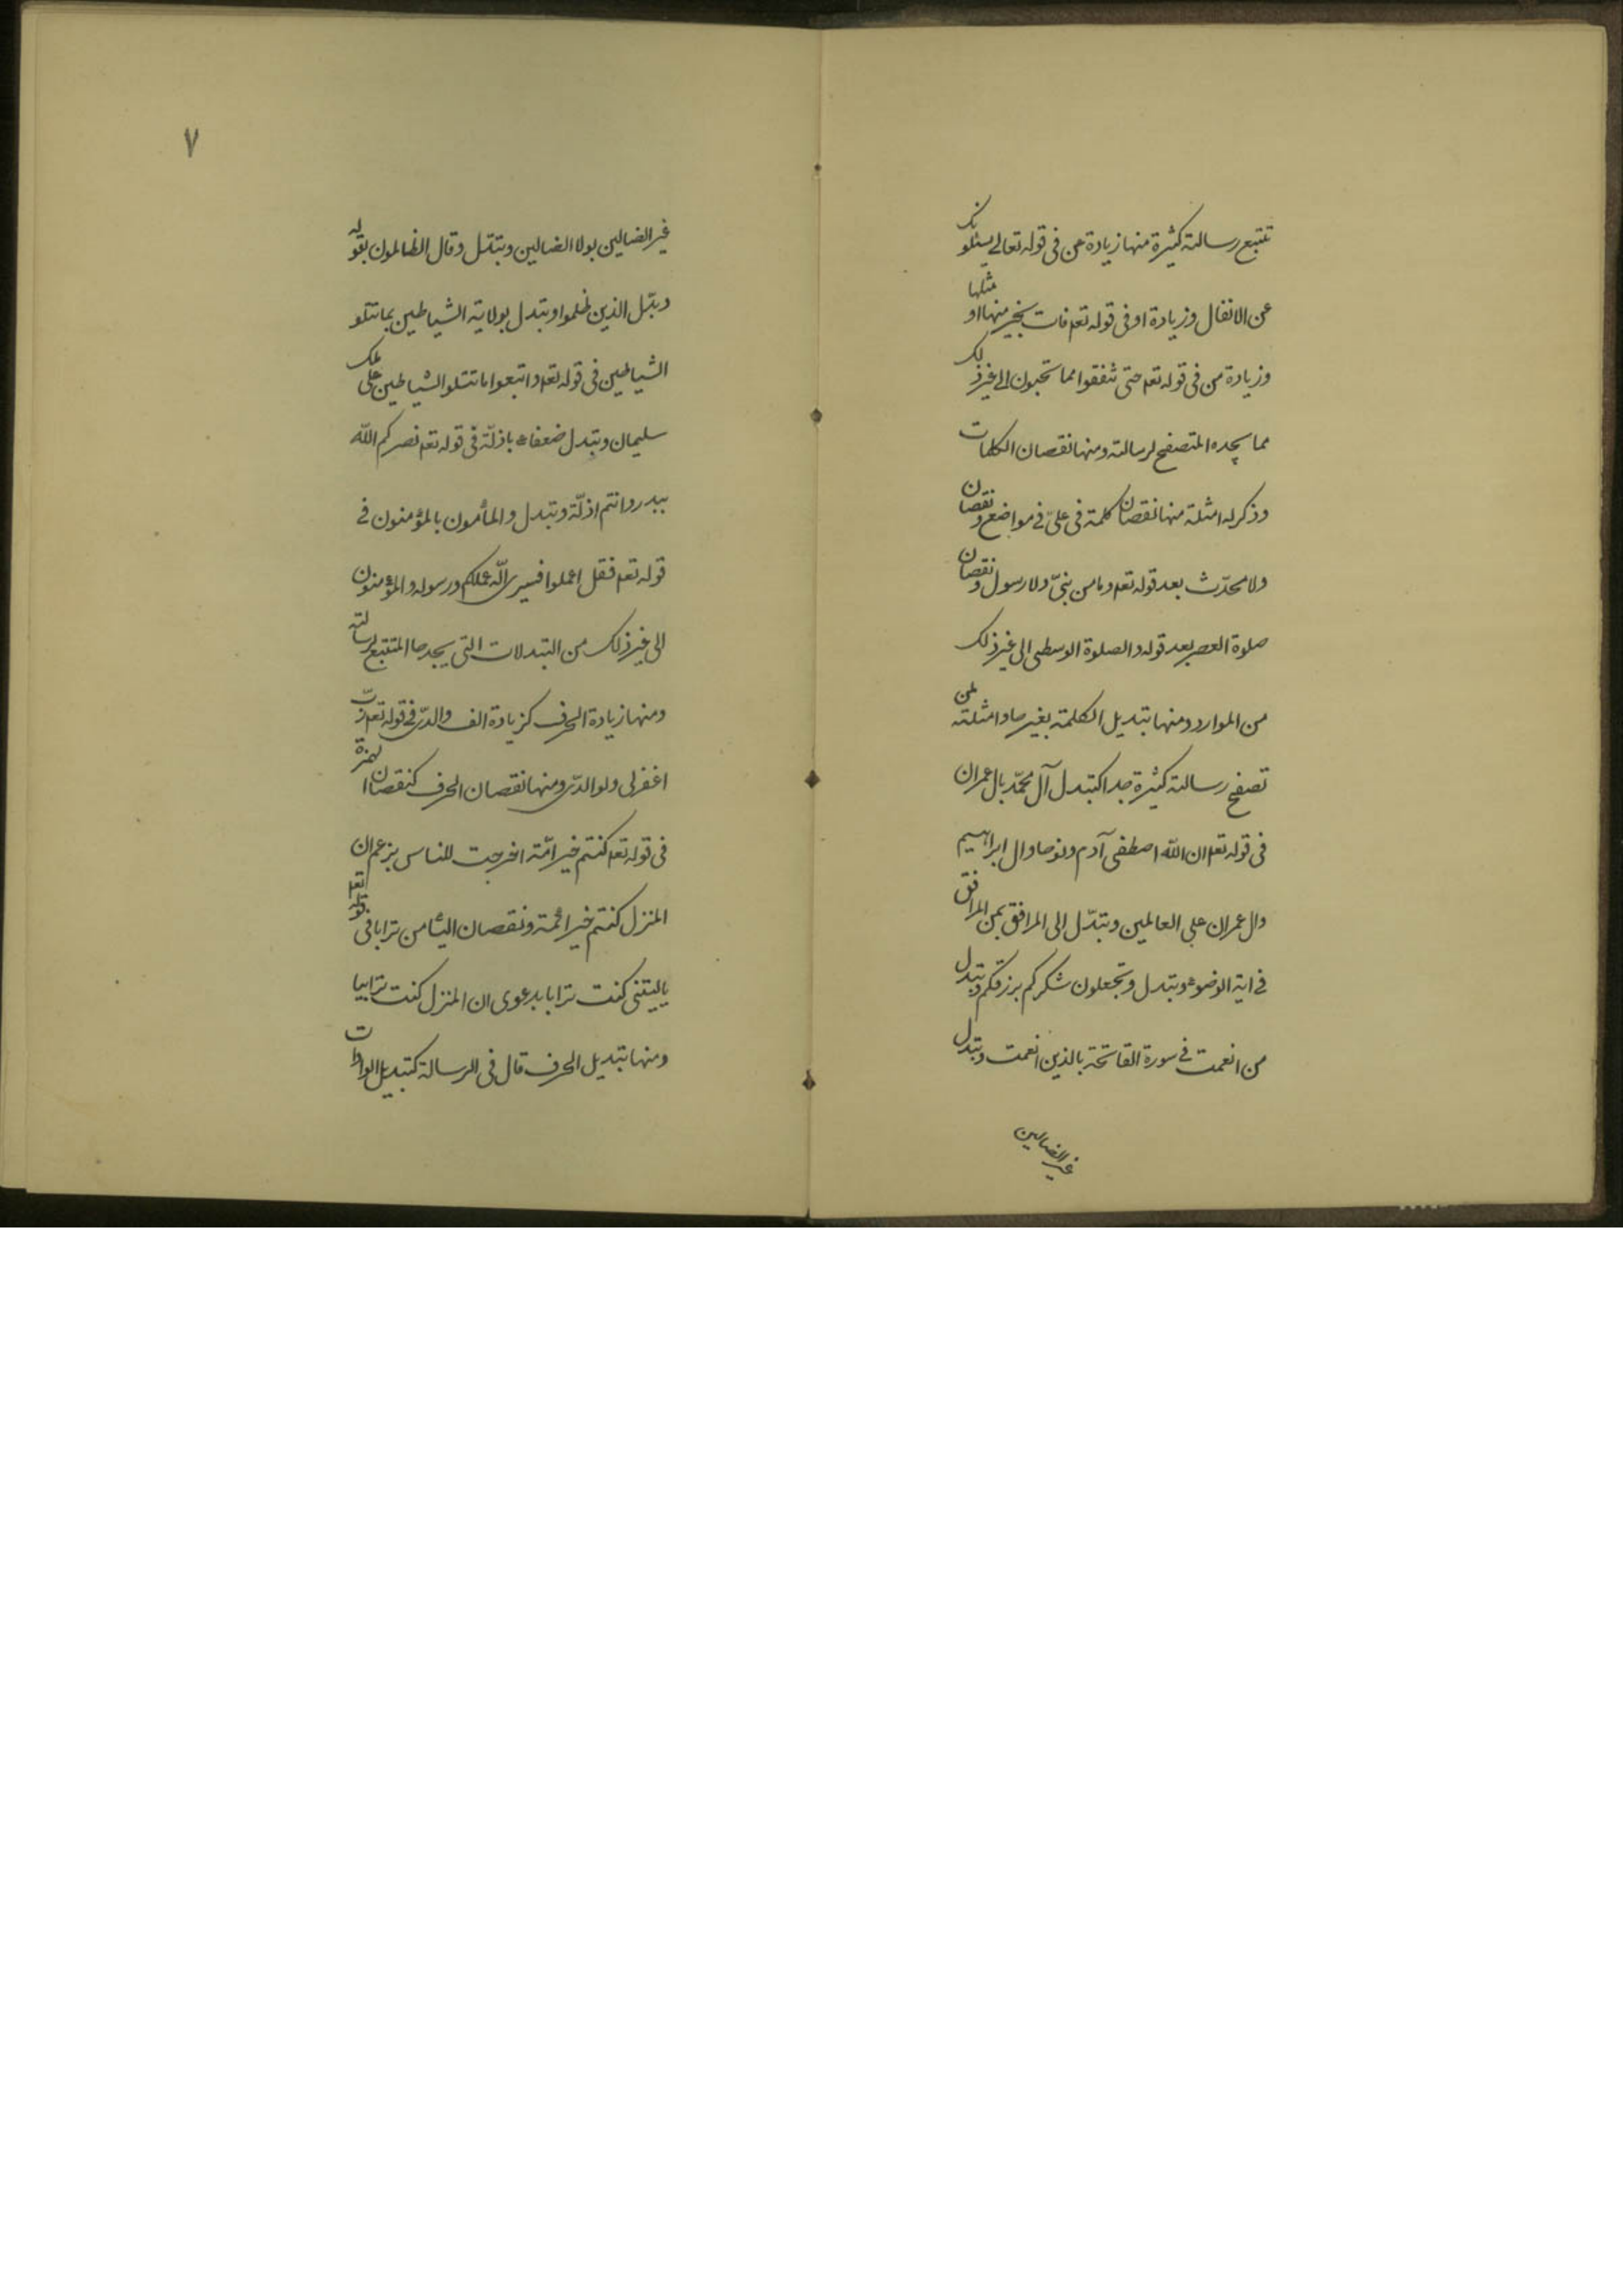 تتبع رسالته كثيرة منها زيادة عن فى قوله تعالى يسئلونك
عن الانفال وزيادة او فى قوله تعه نات بخير منها او مثلها
وزيادة من فى قوله تعه حتى تنفقوا مما تحبون الى غير ذلك
مما يجده المتصفح لرسالته ومنها نقصان الكلمات
وذكر له امثلة منها نقصان كلمة فى علىّ فى مواضع ونقصان
ولا محدّث بعد قوله تعه وما من نبىّ ولا رسول ونقصان
صلوة العصر بعد قوله والصلوة الوسطى الى غير ذلك
من الموارد ومنها تبديل الكلمة بغيرها وامثلته لمن
تصفح رسالته كثيرة جدا كتبدل آل محمّد بال عمران
فى قوله تعه ان الله اصطفى آدم ونوحا وال ابراهيم
وال عمران على العالمين وتبدّل الى المرافق بمن المرافق
فى اية الوضوء وتبدل وتجعلون شكركم برزقكم وتبدل
من انعمت فى سورة الفاتحة بالذين انعمت وتبدل
غير الضالين
٧
غير الضالين بولا الضالين وتبدّل وقال الظالمون بقوله
وبدّل الذين ظلموا وتبدل بولاية الشياطين بما تتلو
الشياطين فى قوله تعه واتبعوا ما تتلو الشياطين على ملك
سليمان وتبدل ضعفاء باذلّة فى قوله تعه نصركم الله
ببدر وانتم اذلّة وتبدل والمأمون بالمؤمنون فى
قوله تعه فقل اعملوا فسيرى الله عملكم ورسوله والمؤمنون
الى غير ذلك من التبدلات التى يجدها المتتبع لرسالته
ومنها زيادة الحرف كزيادة الف والدىّ فى قوله تعه ربّ
اغفر لى ولوالدىّ ومنها نقصان الحرف كنقصان الهمزة
فى قوله تعه كنتم خير امّة اخرجت للناس بزعم ان
المنزل كنتم خير ائمة ونقصان اليا من ترابا فى قوله تعه
يا ليتنى كنت ترابا بدعوى ان المنزل كنت ترابيا
ومنها تبديل الحرف قال فى الرسالة كتبديل الواوات